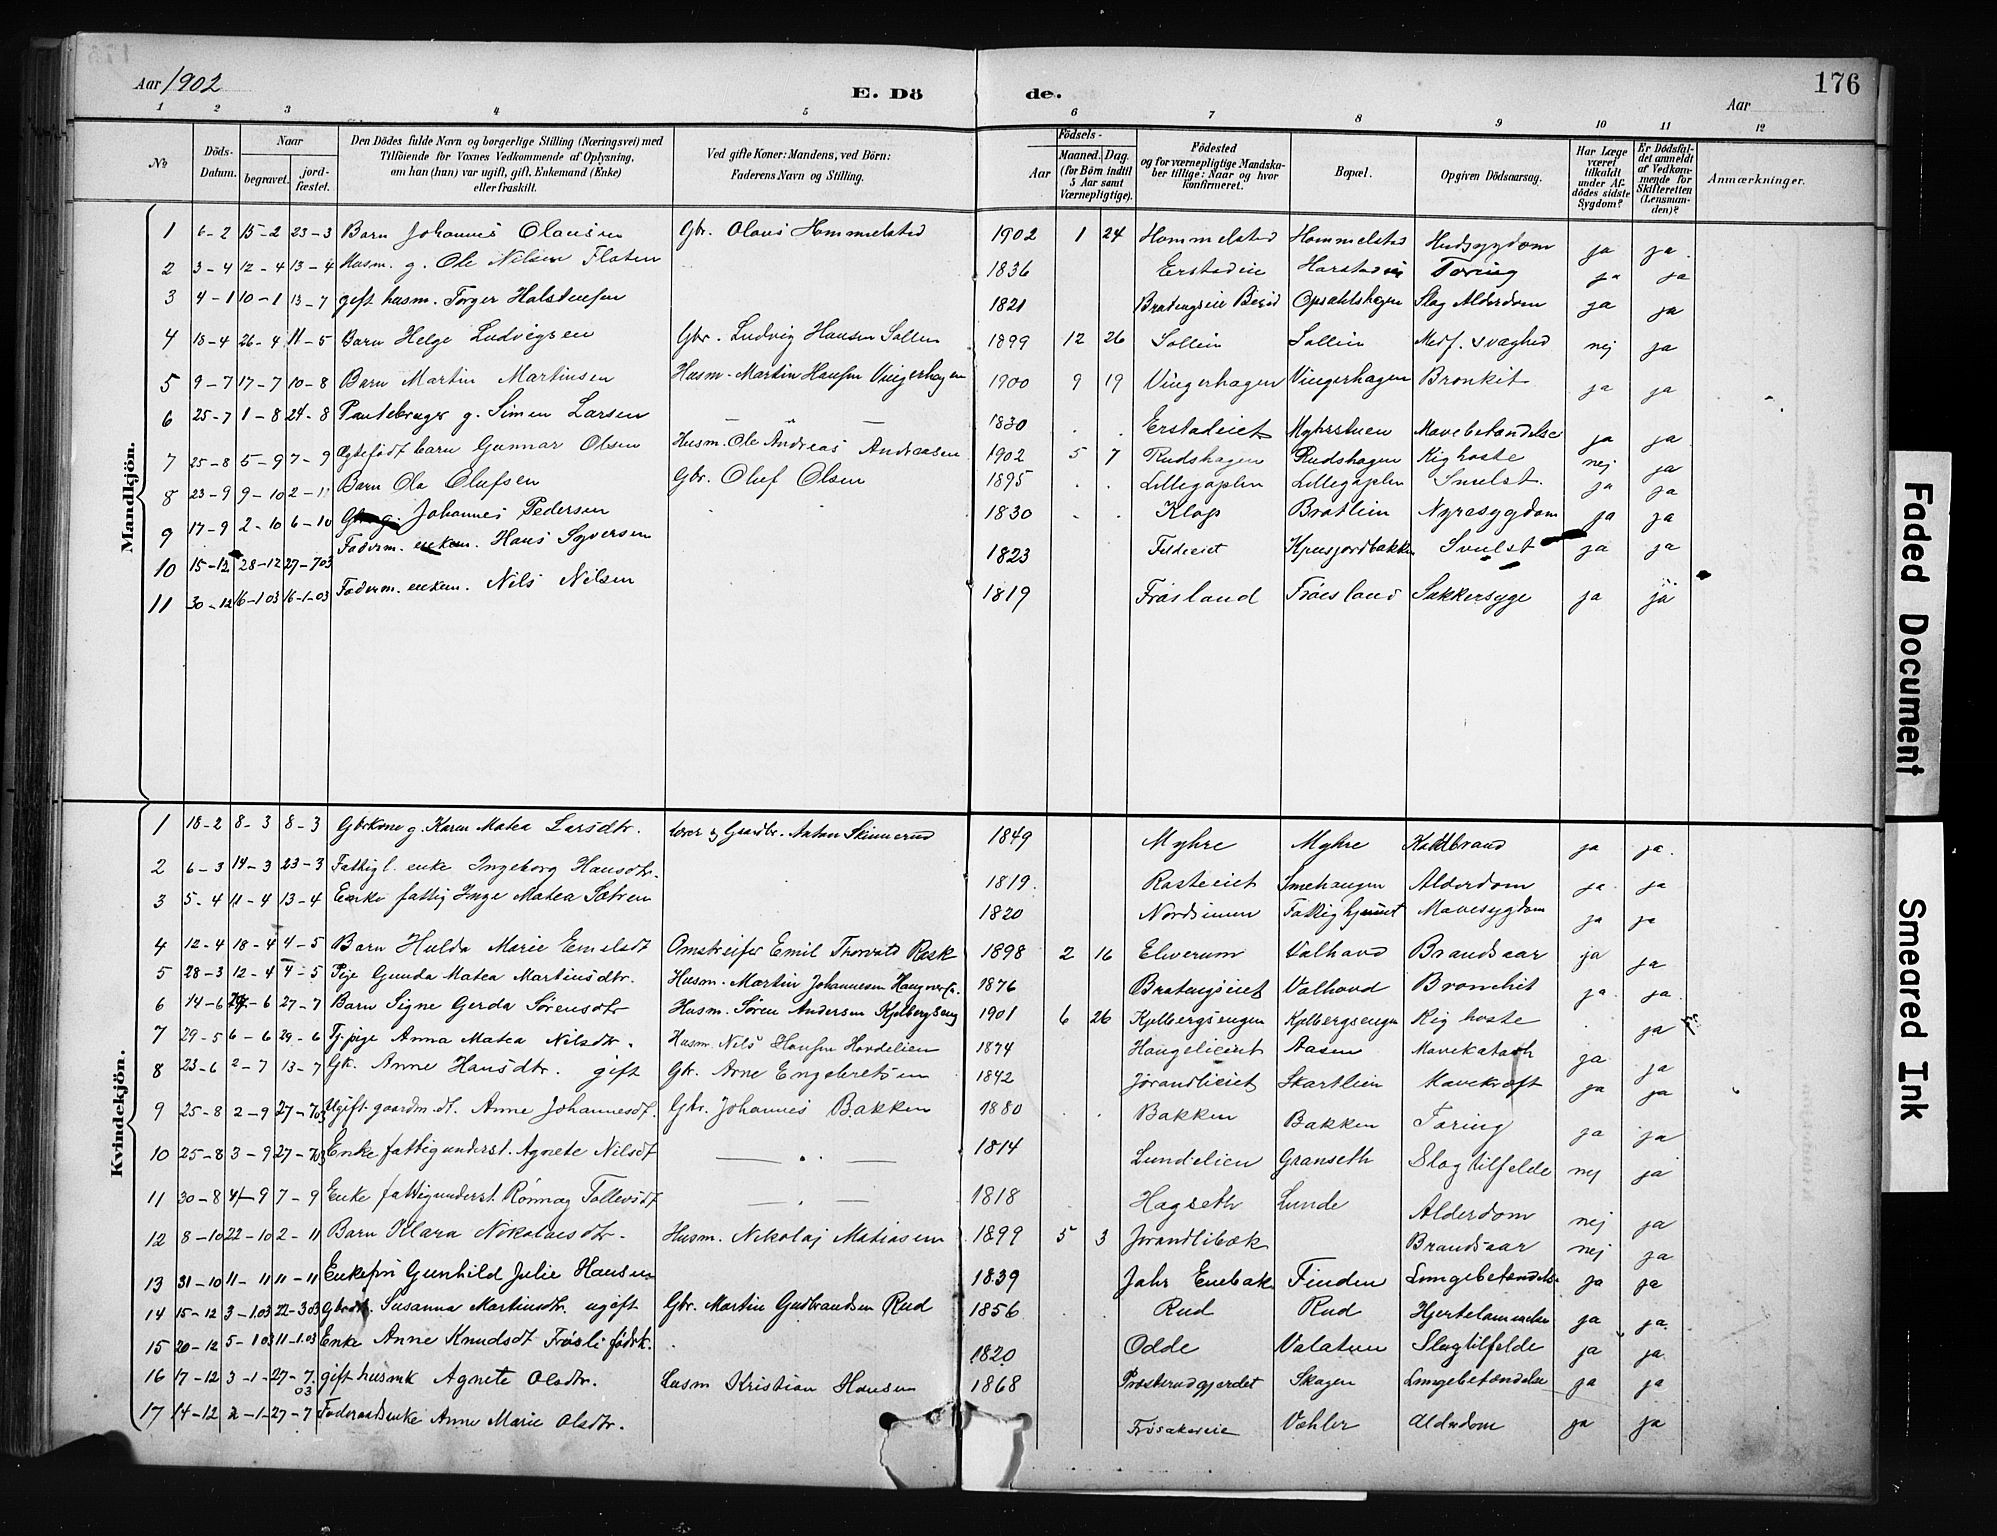 Aar 1902 E. Dö de. Aar 176
1 2 3 4 5 6 7 8 9 10 11 12
No Döds-Datum. Naar begravet. jord-fæstet. Den Dödes fulde Navn og borgerlige Stilling (Næringsvei) med Tilföiende for Voxnes Vedkommende af Oplysning, om han (hun) var ugift, gift, Enkemand (Enke) eller fraskilt. Ved gifte Koner: Mandens, ved Börn: Faderens Navn og Stilling. Födsels- Aar Maaned. Dag. (for Börn indtil 5 Aar samt Værnepligtige). Födested og for værnepligtige Mandskaber tillige: Naar og hvor konfirmeret. Bopæl. Opgiven Dödsaarsag. Har Læge været tilkaldt under Afdödes sidste Sygdom? Er Dödsfaldet anmeldt af Vedkommende for Skifteretten (Lensmanden)? Anmærkninger.
Mandkjön.
1 6-2 15-2 23-3 Barn Johannes Olausen Gbr. Olaus Hommelstad 1902 1 24 Hommelstad Hommelstad ja ja.
2 3-4 12-4 13-4 Husm. g. Ole Nilsen Floten 1836 Erstadeie Harstadeie Tæring ja ja
3 4-1 10-1 13-7 gift husm. Torger Halstensen 1821 Opsahlshagen Slag Alderdom ja ja
4 18-4 26-4 11-5 Barn Helge Ludvigsen Gbr. Ludvig Hansen Sollien 1899 12 26 Sollien Sollien Medf. svaghed nej ja
5 9-7 17-7 10-8 Barn Martin Martinsen Husm. Martin Hansen Vingerhagen 1900 9 19 Vingerhagen Vingerhagen Bronkit ja ja
6 25-7 1-8 24-8 Pantebruger g. Simen Larsen 1830 . . Erstadeiet Myhrstuen Mavebetændelse ja ja
7 25-8 5-9 7-9 Ægtefödt barn Gunnar Olsen Husm. Ole Andreas Andreasen 1902 5 7 Rudshagen Rudshagen Kighoste nej ja
8 23-9 9-10 2-11 Barn Ola Olufsen Gbr. Oluf Olsen 1895 . . Svulst. ja ja
9 17-9 2-10 6-10 Johannes Pedersen 1830 . . Klop Bratlien Nyresygdom ja ja
10 15-12 28-12 27-7 03 Föderm. enkem. Hans Syversen 1823 Svulst ja ja
11 30-12 16-1 03 16-1-03 Föderm. enkem. Nils Nilsen 1819 Fröisland Fröisland Sukkersyge ja ja
Kvindekjön.
1 18-2 8-3 8-3 Gbrkone g. Karen Matea Larsdtr. lærer og Gaardbr. Anton Skinnerud 1849 Myhre Myhre Koldbrand ja ja.
2 6-3 14-3 23-3 Fattigl. enke Ingeborg Hansdtr. 1819. Rosteeiet Smehaugen Alderdom ja ja
3 5-4 11-4 13-4 Enke fattig Inge Matea Sætren 1820 Nordsinnen Fattighjemmet Mavesygdom ja ja
4 12-4 18-4 4-5 Barn Hulda Marie Emilsdt Omstreifer Emil Thorvald Rask 1898 2 16 Elverum Valhovd Brandsaar ja ja
5 28-3 12-4 4-5 Pige Gunda Matea Martinsdtr. Husm. Martin Johannesen 1876 Bratengseiet Valhovd Bronchit ja ja.
6 14-6 -6 27-7 Barn Signe Gerda Sörensdtr Husm. Sören Andersen Kjølbergseng 1901 6 26 Kjølbergsengen Kjølbergsengen Kighoste . ja
7 29-5 6-6 29-6 Tj. pige Anna Matea Nilsdtr. Husm. Nils Hansen Hovdelien 1874 Haugelieiet Aasen Mavekatarh ja ja
8 23-6 2-7 13-7 Gk. Anne Hansdtr. gift Gbr. Arne Engebretsen 1842 Jørandlieiet Skartlien Mavekræft ja ja
9 25-8 2-9 27-7 03 Ugift gaardm. dt. Anne Johannesdt. Gbr. Johannes Bakken 1880 . . Bakken Bakken Tæring ja ja
10 25-8 3-9 27-7 03 Enke fattigunderst. Agnete Nilsdt 1814 Lundelien Granseth Slagtilfelde nej ja
11 30-8 4-9 7-9 Enke fattigunderst. Rönnaug Tollevsdt 1818 Hagseth Lunde Alderdom nej ja
12 8-10 22-10 2-11 Barn Klara Nikolaisdtr. Husm. Nikolaj Matiasen 1899 5 3 Jørandlibæk Brandsaar nej ja
13 31-10 11-11 11-11 Enkefru Gunhild Julie Hansen 1839 Jahr Enebak Finden Lungebetændelse ja ja
14 15-12 3-1.03 22-3 03 Gbrdt. Susanna Martinsdtr. ugift Gbr. Martin Gudbrandsen Rud 1856 Rud Rud Hjertelammelse ja ja.
15 20-12 5-1 03 11-1.03 Enke Anne Knudsdt Fröisli födrk. 1820 Odde Valatun Slagtilfelde ja ja
16 17-12 3-1- 27-7 03 gift husmk Agnete Olsdtr. Husm Kristian Hansen 1868 Skogen Lungebetændelse ja ja
17 14-12 2-1- 27-7 Föderaadsenke Anne Marie Olsdtr. Vøhler Alderdom ja ja
Faded Document
Smeared Ink